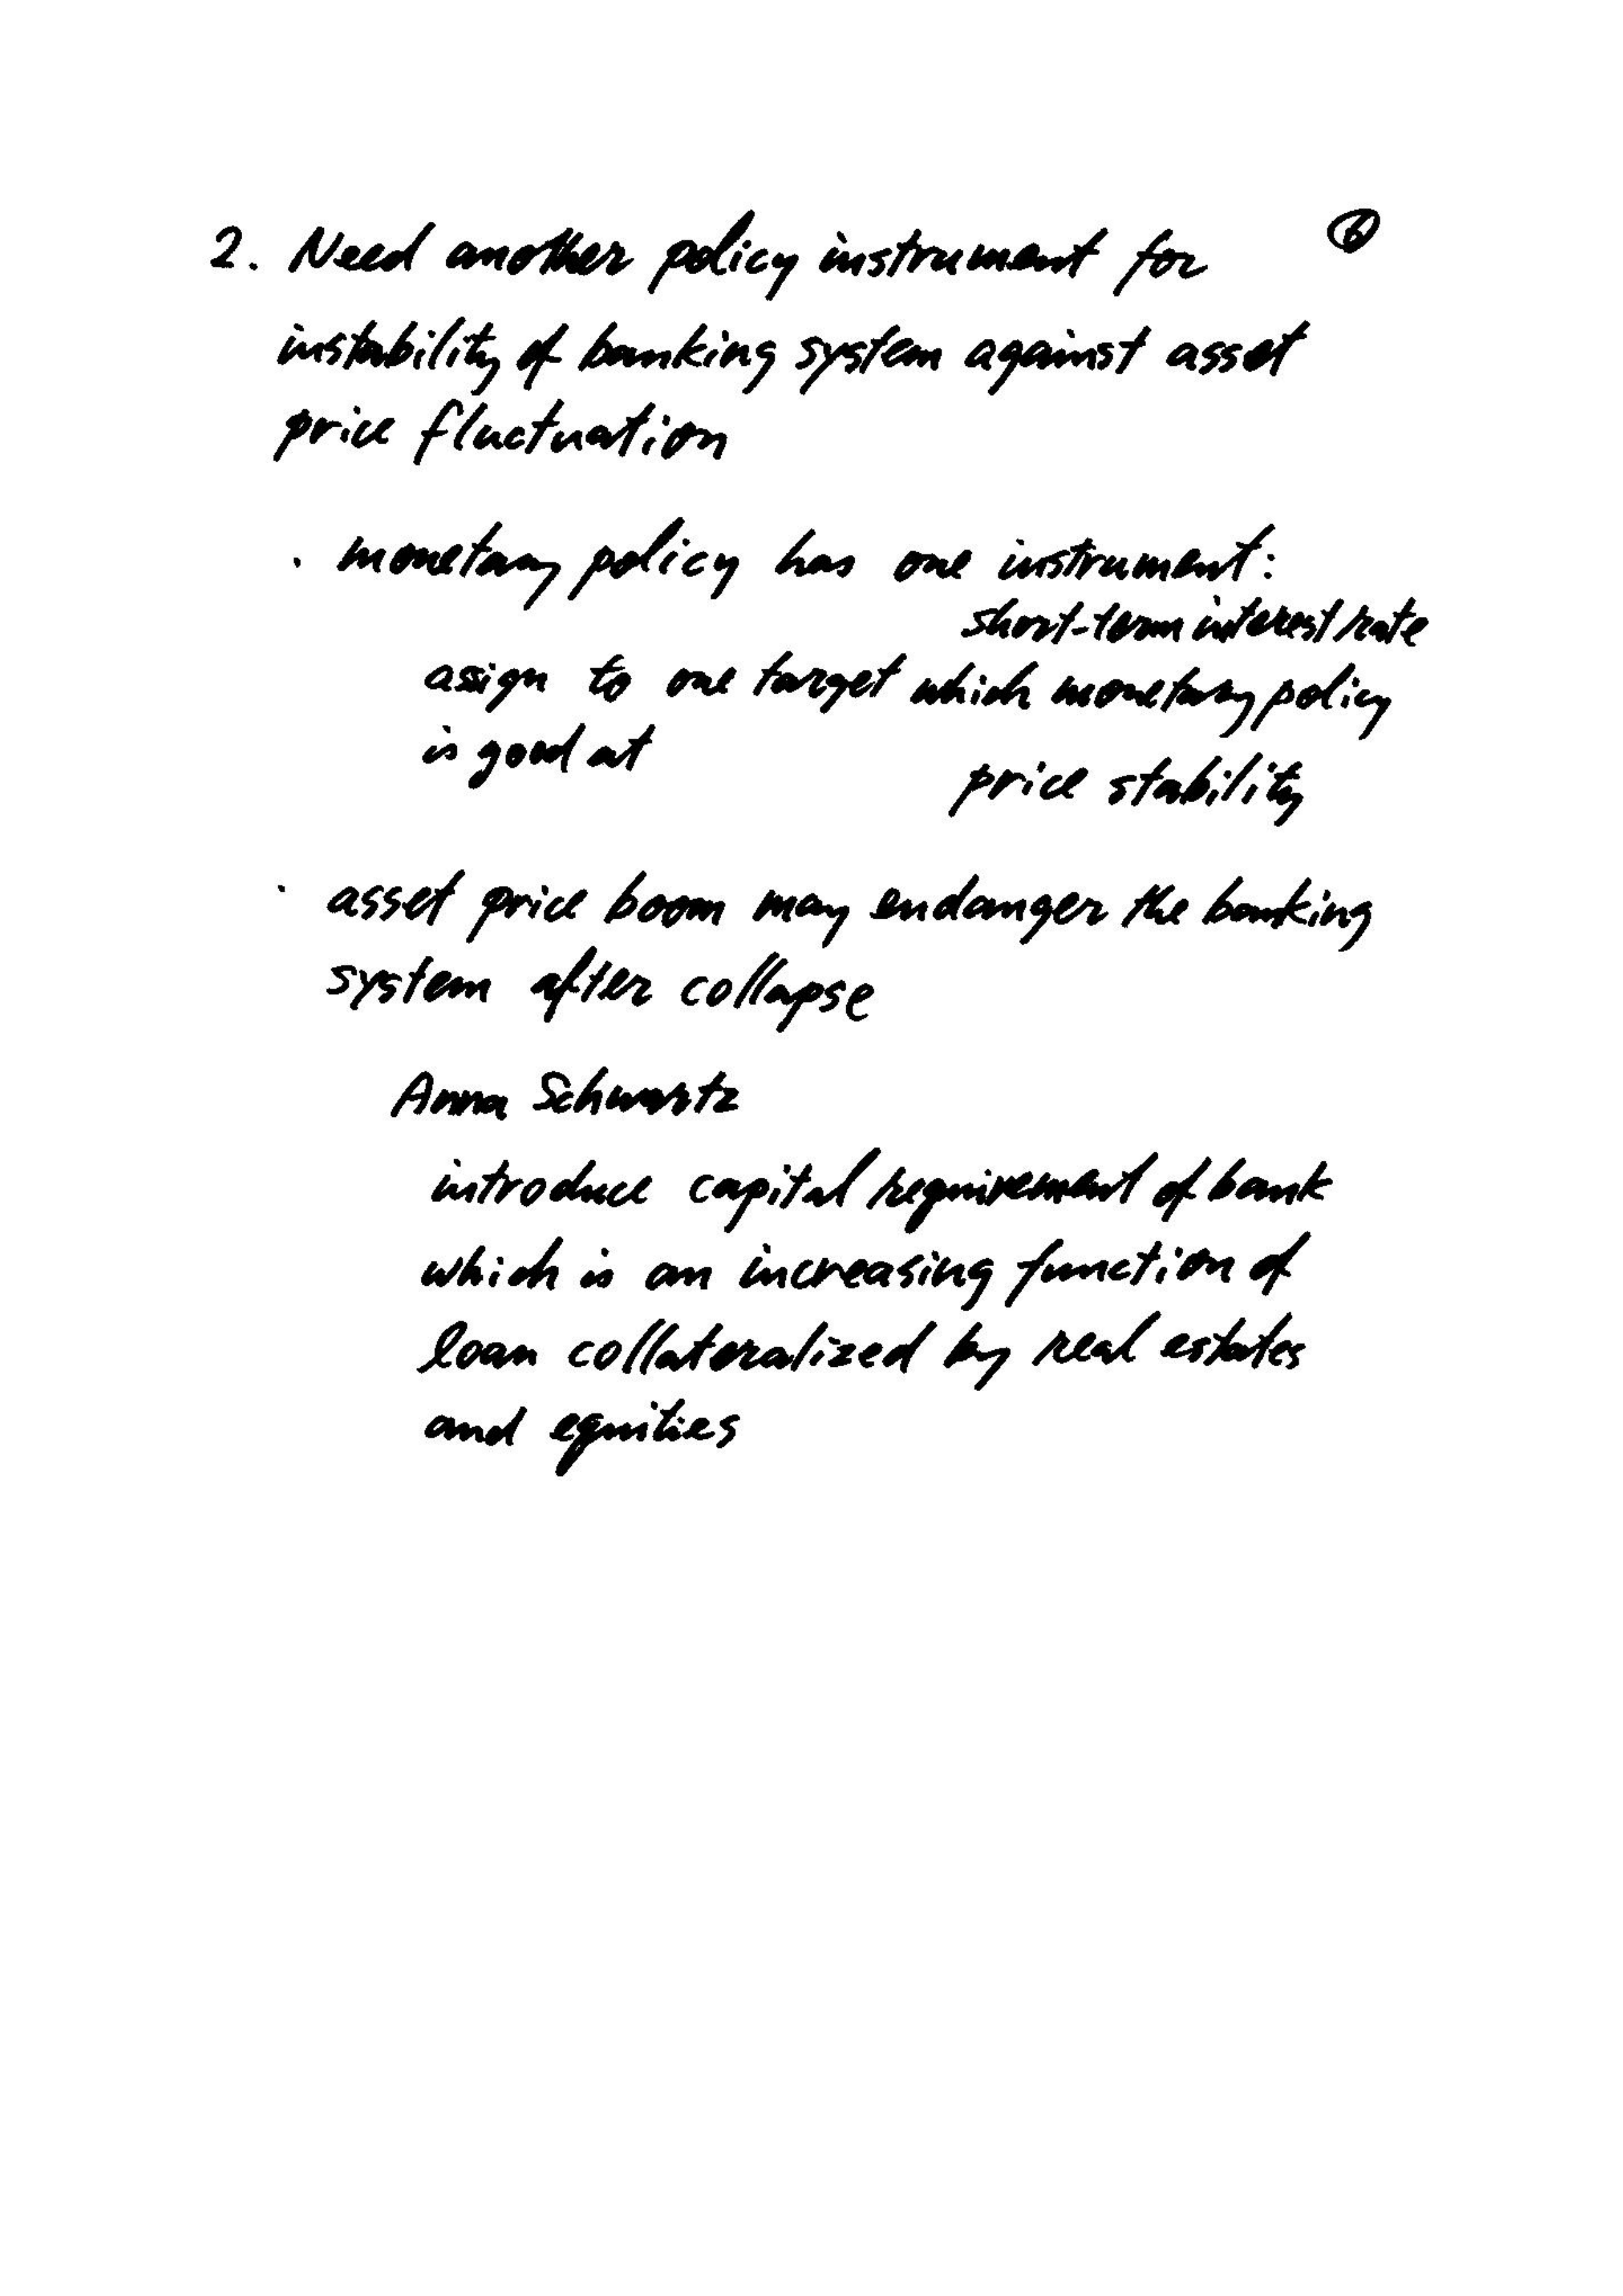 2. Need another policy instrument for ⑥
instability of banking system against asset
price fluctuation
· monetary policy has one instrument:
short-term interest rate
assign to one target which monetary policy
is good at
price stability
· asset price boom may endanger the banking
system after collapse
Anna Schwartz
introduce capital requirement of bank
which is an increasing function of
loan collateralized by real estates
and equities